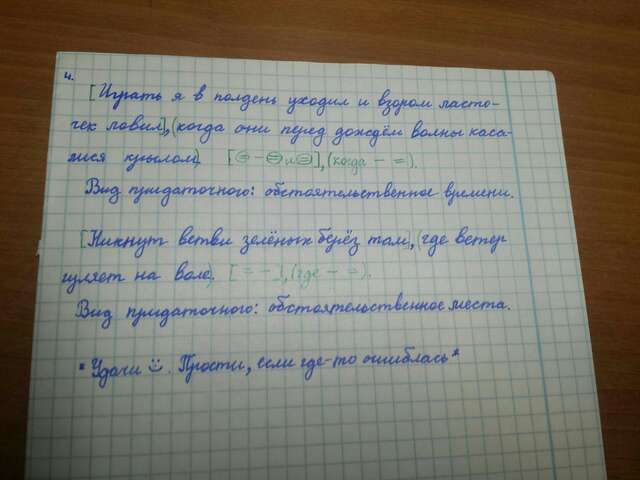 4.
[Играть я в полдень уходил и взором ласто-
чек ловил], (когда они перед дождём волны каса-
лися крылом). [⊜ – ⊜ и ⊜], (когда – =).
Вид придаточного: обстоятельственное времени.
[Никнут ветви зелёных берёз там], (где ветер
гуляет на воле). [= –], (где – =).
Вид придаточного: обстоятельственное места.
*Удачи. Прости, если где-то ошиблась*